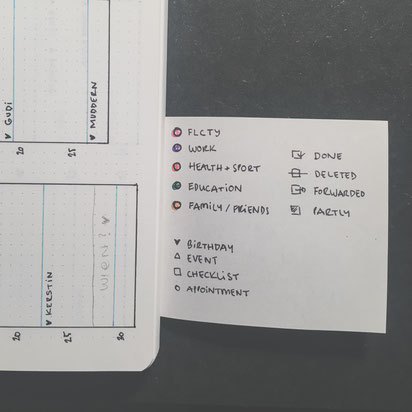 ♥ GUDI
♥ MUDDERN
20
25
WHEN? ♥
♥ KERSTIN
20
25
30
FLCTY
WORK
HEALTH + SPORT
EDUCATION
FAMILY / FRIENDS
DONE
DELETED
FORWARDED
PARTLY
♥ BIRTHDAY
△ EVENT
□ CHECKLIST
○ APPOINTMENT